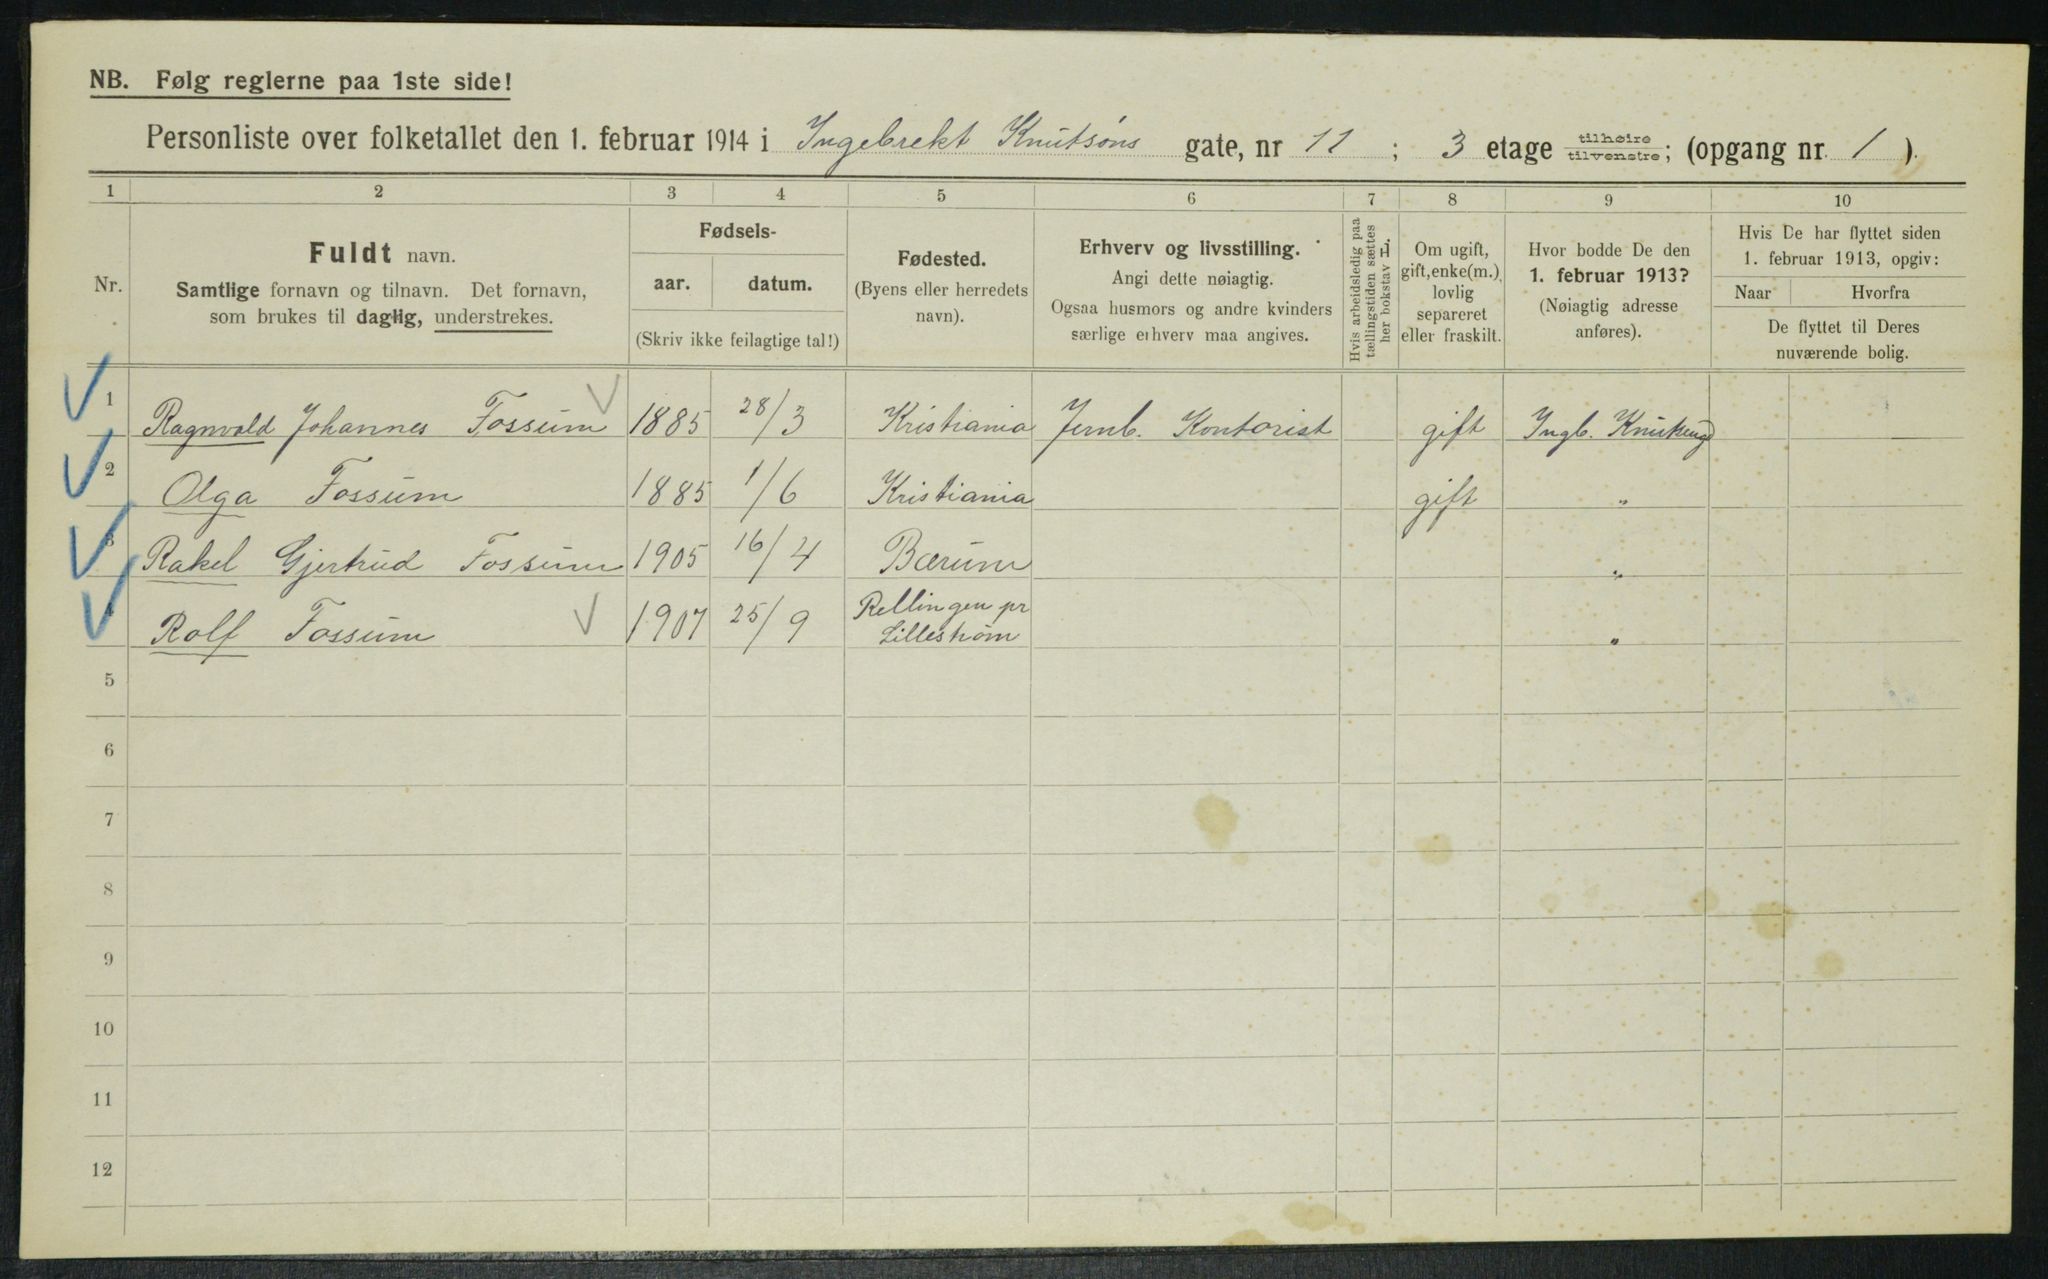 NB. Følg reglerne paa 1ste side!
Personliste over folketallet den 1. februar 1914 i Ingebrekt Knutsøns gate, nr 11; 3 etage tilhøire tilvenstre; (opgang nr. 1).
1 2 3 4 5 6 7 8 9 10
Nr.
Fuldt navn.
Samtlige fornavn og tilnavn. Det fornavn,
som brukes til daglig, understrekes.
Fødsels-
aar. datum.
(Skriv ikke feilagtige tal!)
Fødested.
(Byens eller herredets
navn).
Erhverv og livsstilling.
Angi dette nøiagtig.
Ogsaa husmors og andre kvinders
særlige erhverv maa angives.
Hvis arbeidsledig paa
tællingstiden sættes
her bokstav L.
Om ugift,
gift, enke(m.),
lovlig
separeret
eller fraskilt.
Hvor bodde De den
1. februar 1913?
(Nøiagtig adresse
anføres).
Hvis De har flyttet siden
1. februar 1913, opgiv:
Naar Hvorfra
De flyttet til Deres
nuværende bolig.
1 Ragnvald Johannes Fossum 1885 28/3 Kristiania Jernb. Kontorist gift Ingb. 
2 Olga Fossum 1885 1/6 Kristiania gift "
3 Rakel Gjertrud Fossum 1905 16/4 Bærum "
4 Rolf Fossum 1907 25/9 Rellingen pr
Lillestrøm "
5
6
7
8
9
10
11
12